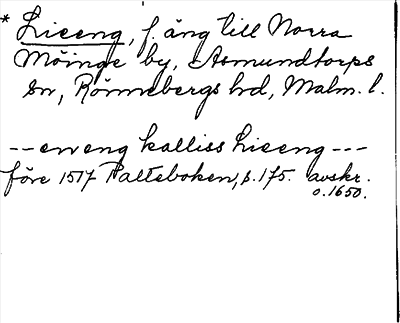 * Liceng, f. äng till Norra
Möinge by, Asmundtorps
sn, Rönnebergs hd, Malm. l.
-- en eng kalliss Liceng ---
före 1517 Palteboken, s. 175. avskr.
o. 1650.